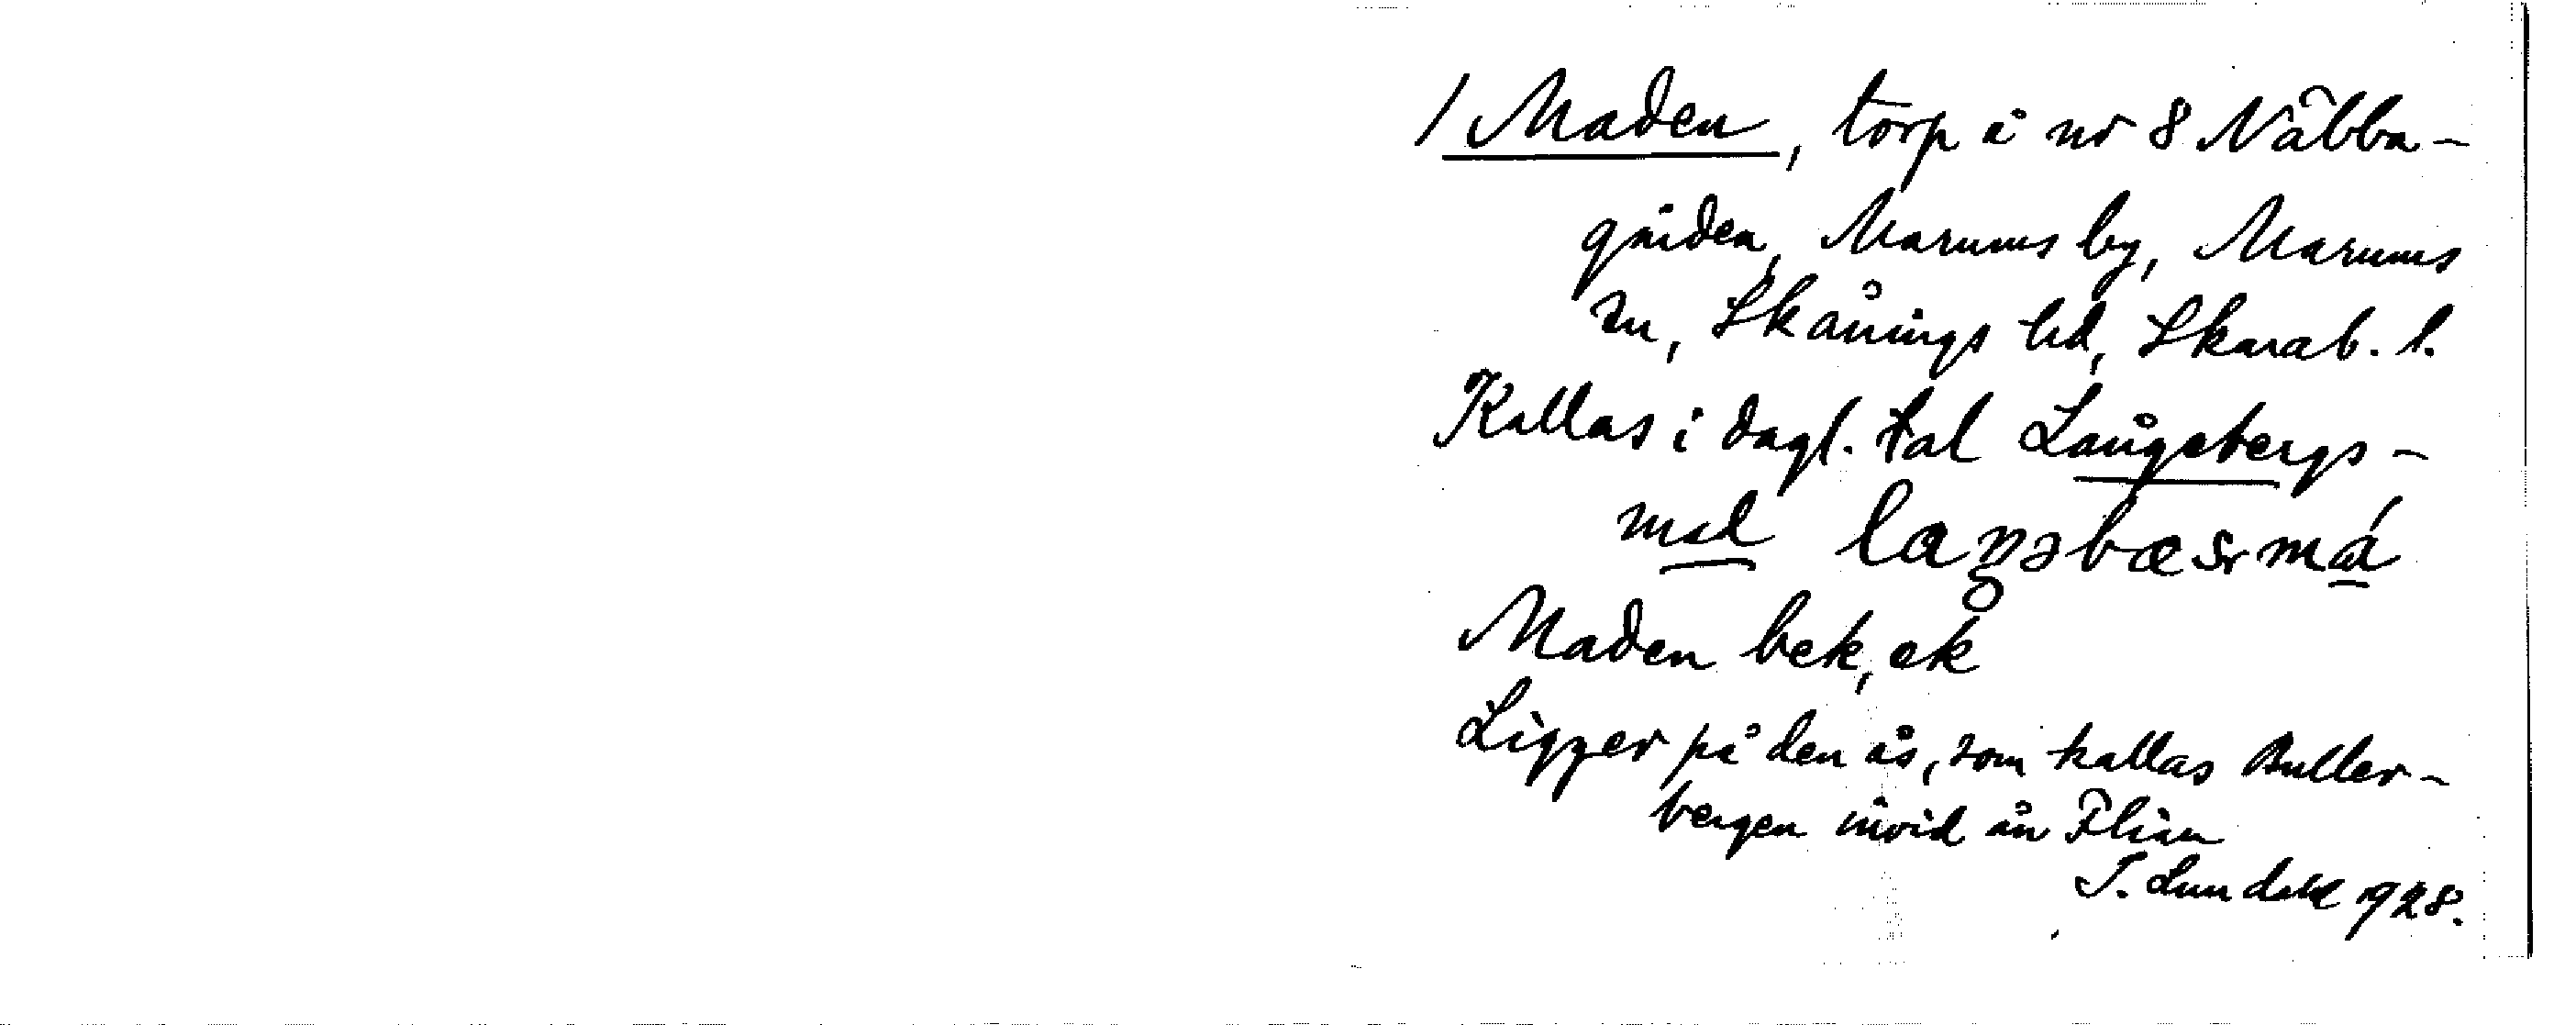 / Maden, torp å nr 8 Näbba-
gården, Marums by, Marums
sn, Skånings hd, Skarab. l.
Kallas i dagl. tal Långebergs-
mad laŋəbæsrmá
Maden bek, ek
Ligger på den ås, som kallas Buller-
bergen invid ån Flian
J. Lundahl 1928.